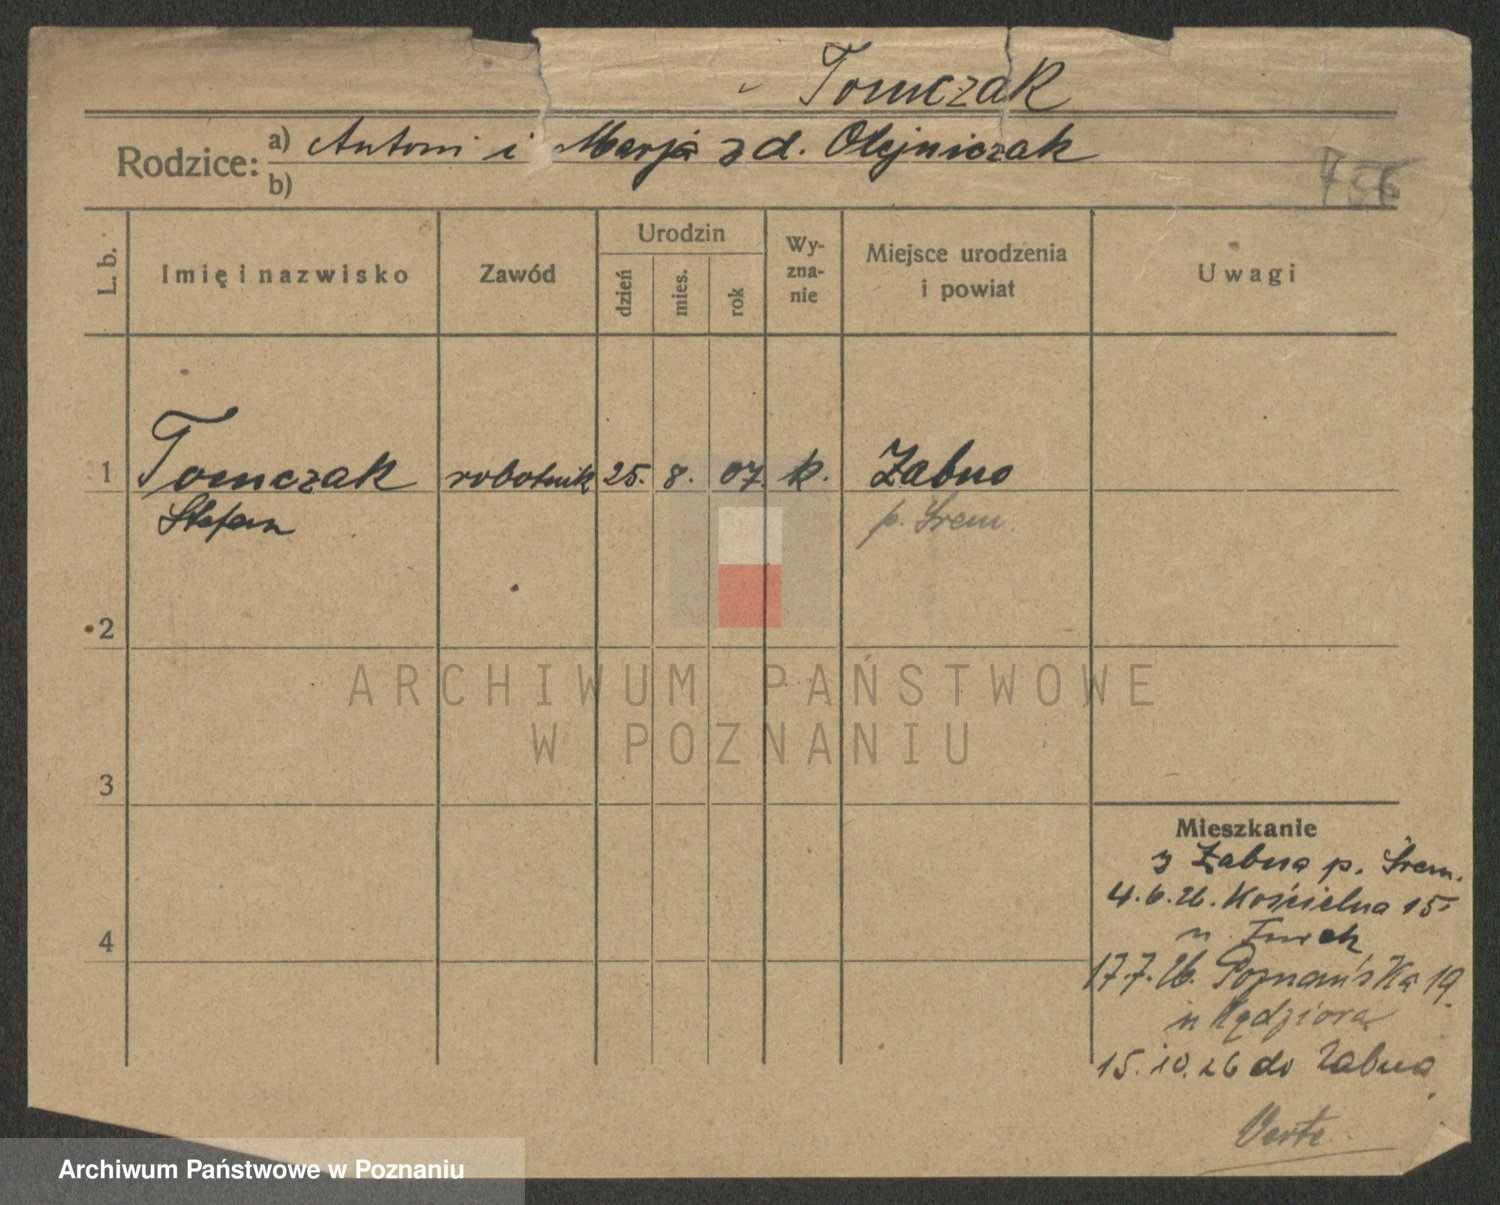 Tomczak
Rodzice: a) Antoni i Marja z d. Olejniczak
b)
756
L. b.
Imię i nazwisko
Zawód
Urodzin
dzień
mies.
rok
Wy-
zna-
nie
Miejsce urodzenia
i powiat
Uwagi
1 Tomczak robotnik 25. 8. 07 k. Żabno
Stefan p. Śrem.
2
ARCHIWUM PAŃSTWOWE
W POZNANIU
3
Mieszkanie
z Żabna p. Śrem.
4.6.26. Kościelna 15
4
u
17.7.26. Poznańska 19
u Kędziora
15.10.26 do Żabna
Verte
Archiwum Państwowe w Poznaniu